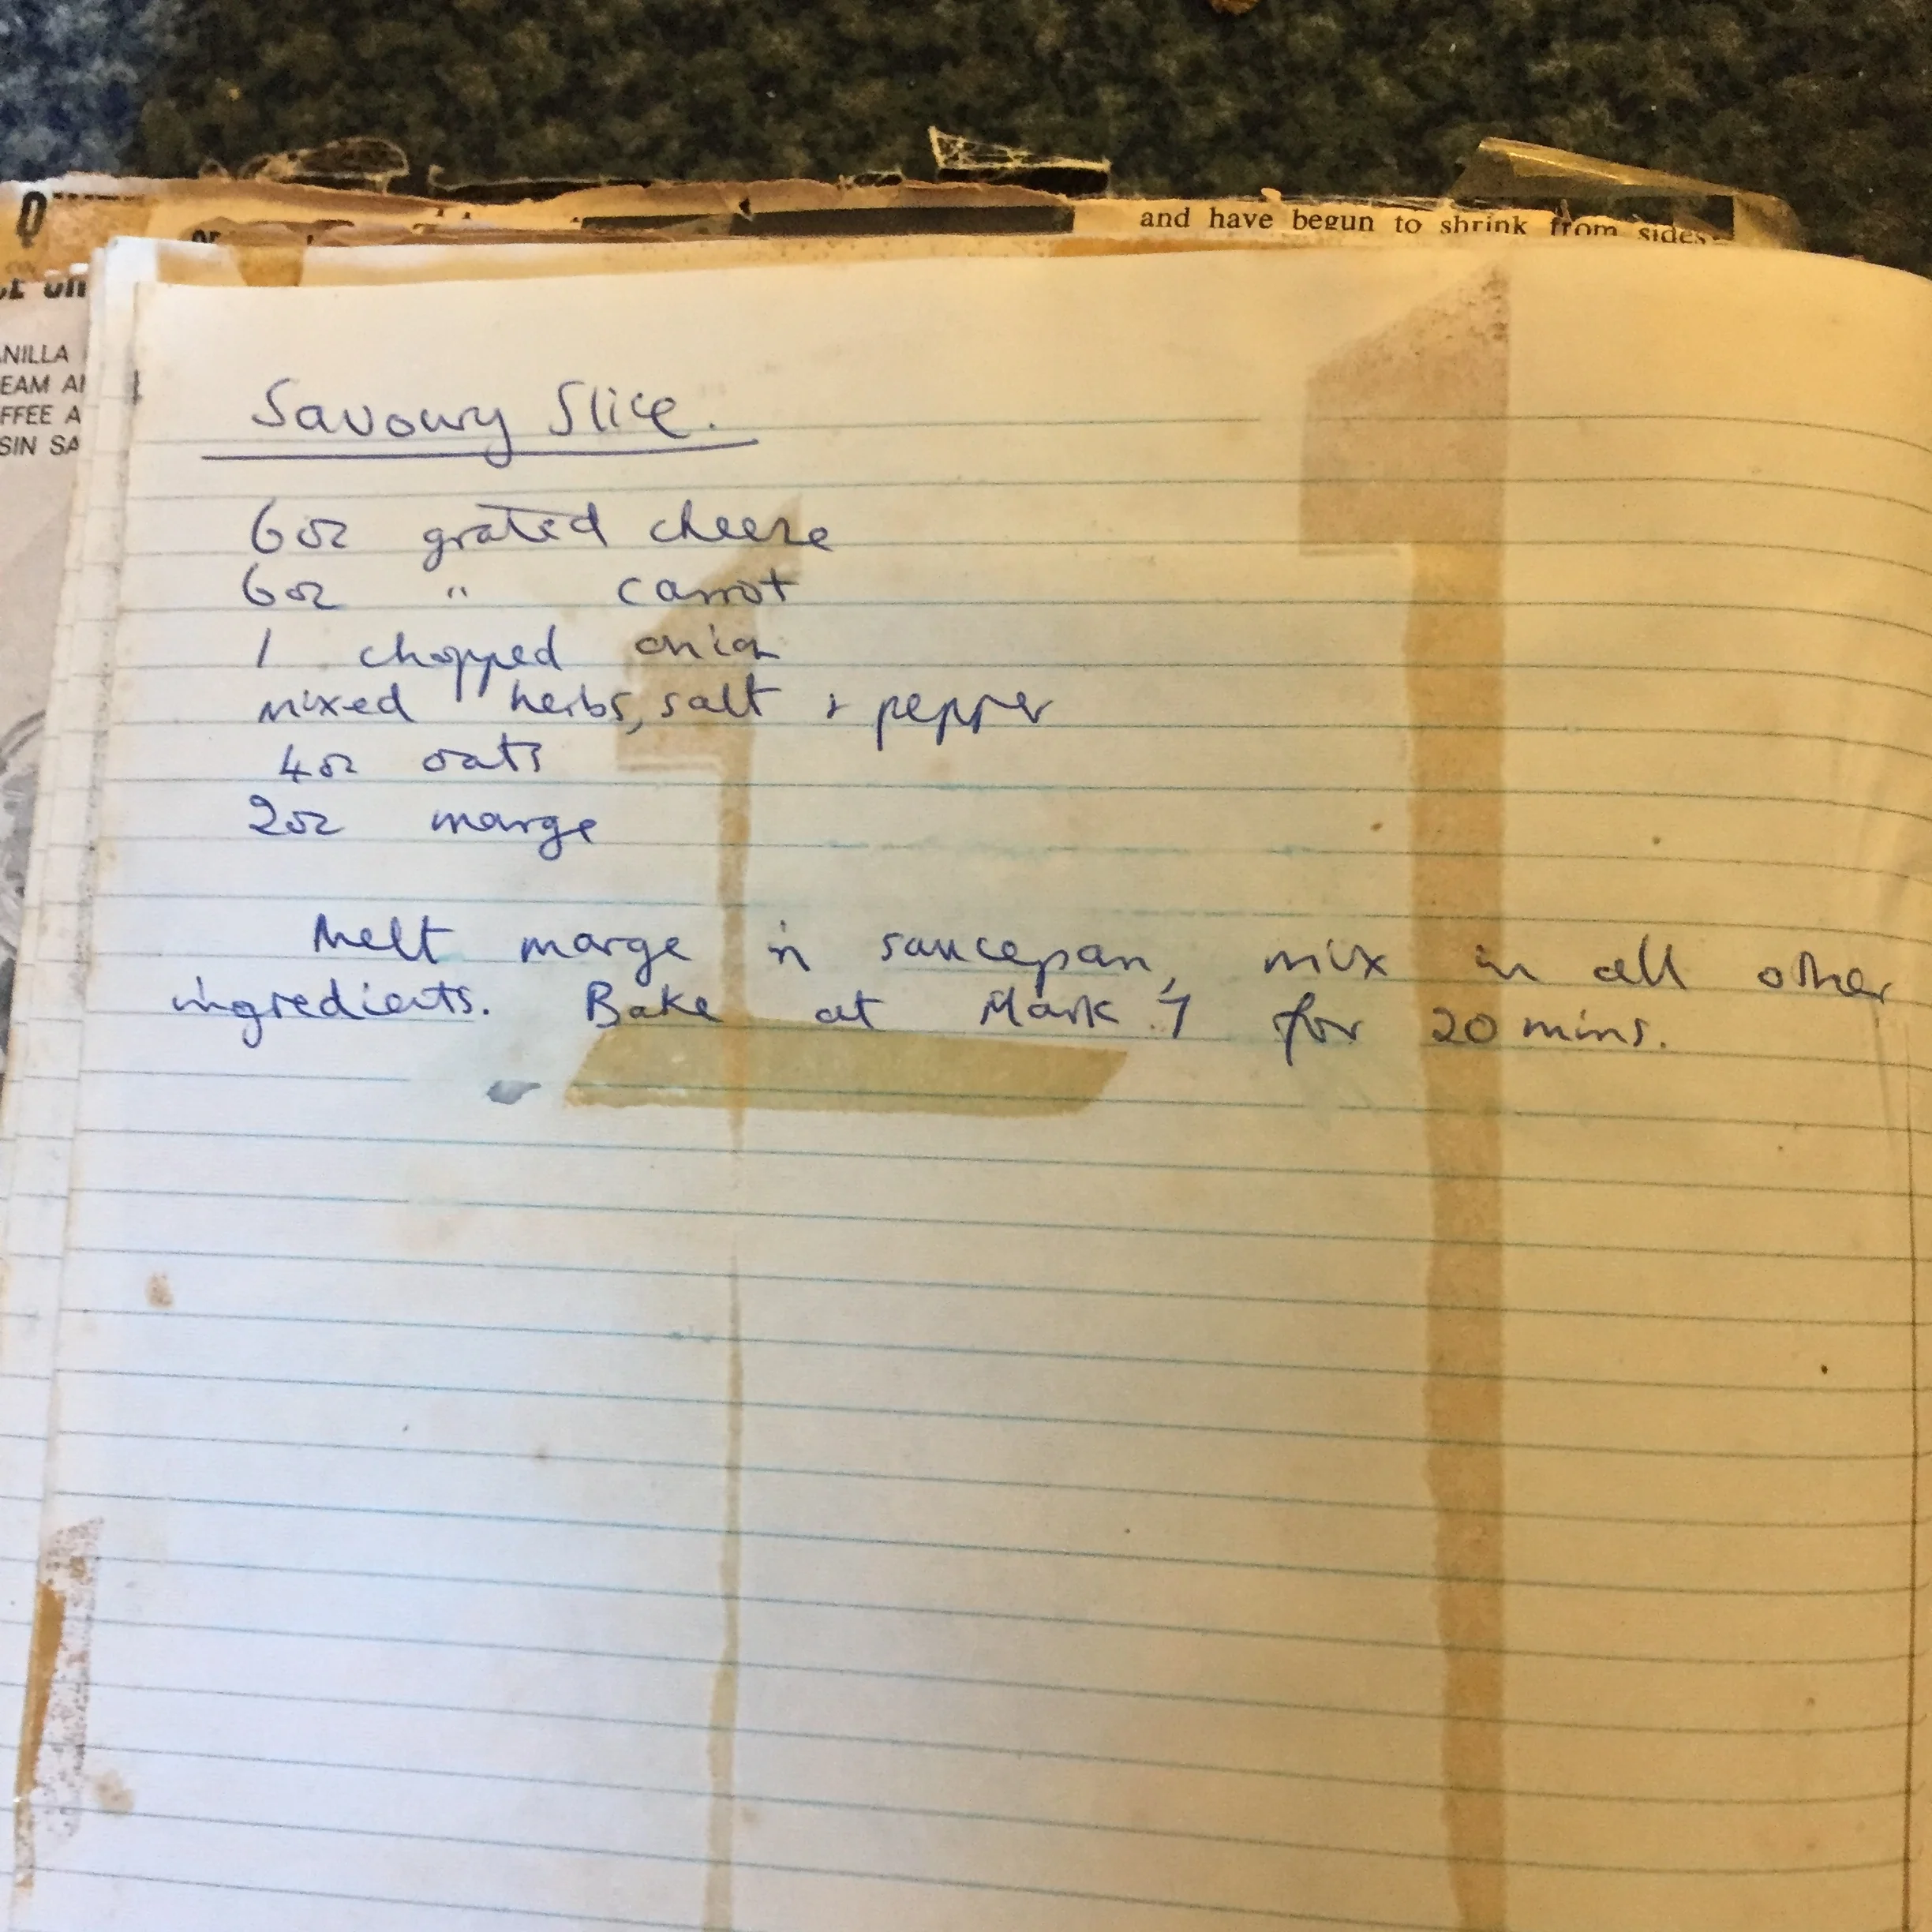 Q
and have begun to shrink from sides
ANILLA
EAM
FFEE A
SIN SA
Savoury Slice.
6oz grated cheese
6oz " carrot
1 chopped onion
mixed herbs, salt + pepper
4oz oats
2oz marge
Melt marge in saucepan, mix in all other
ingredients. Bake at Mark 7 for 20 mins.